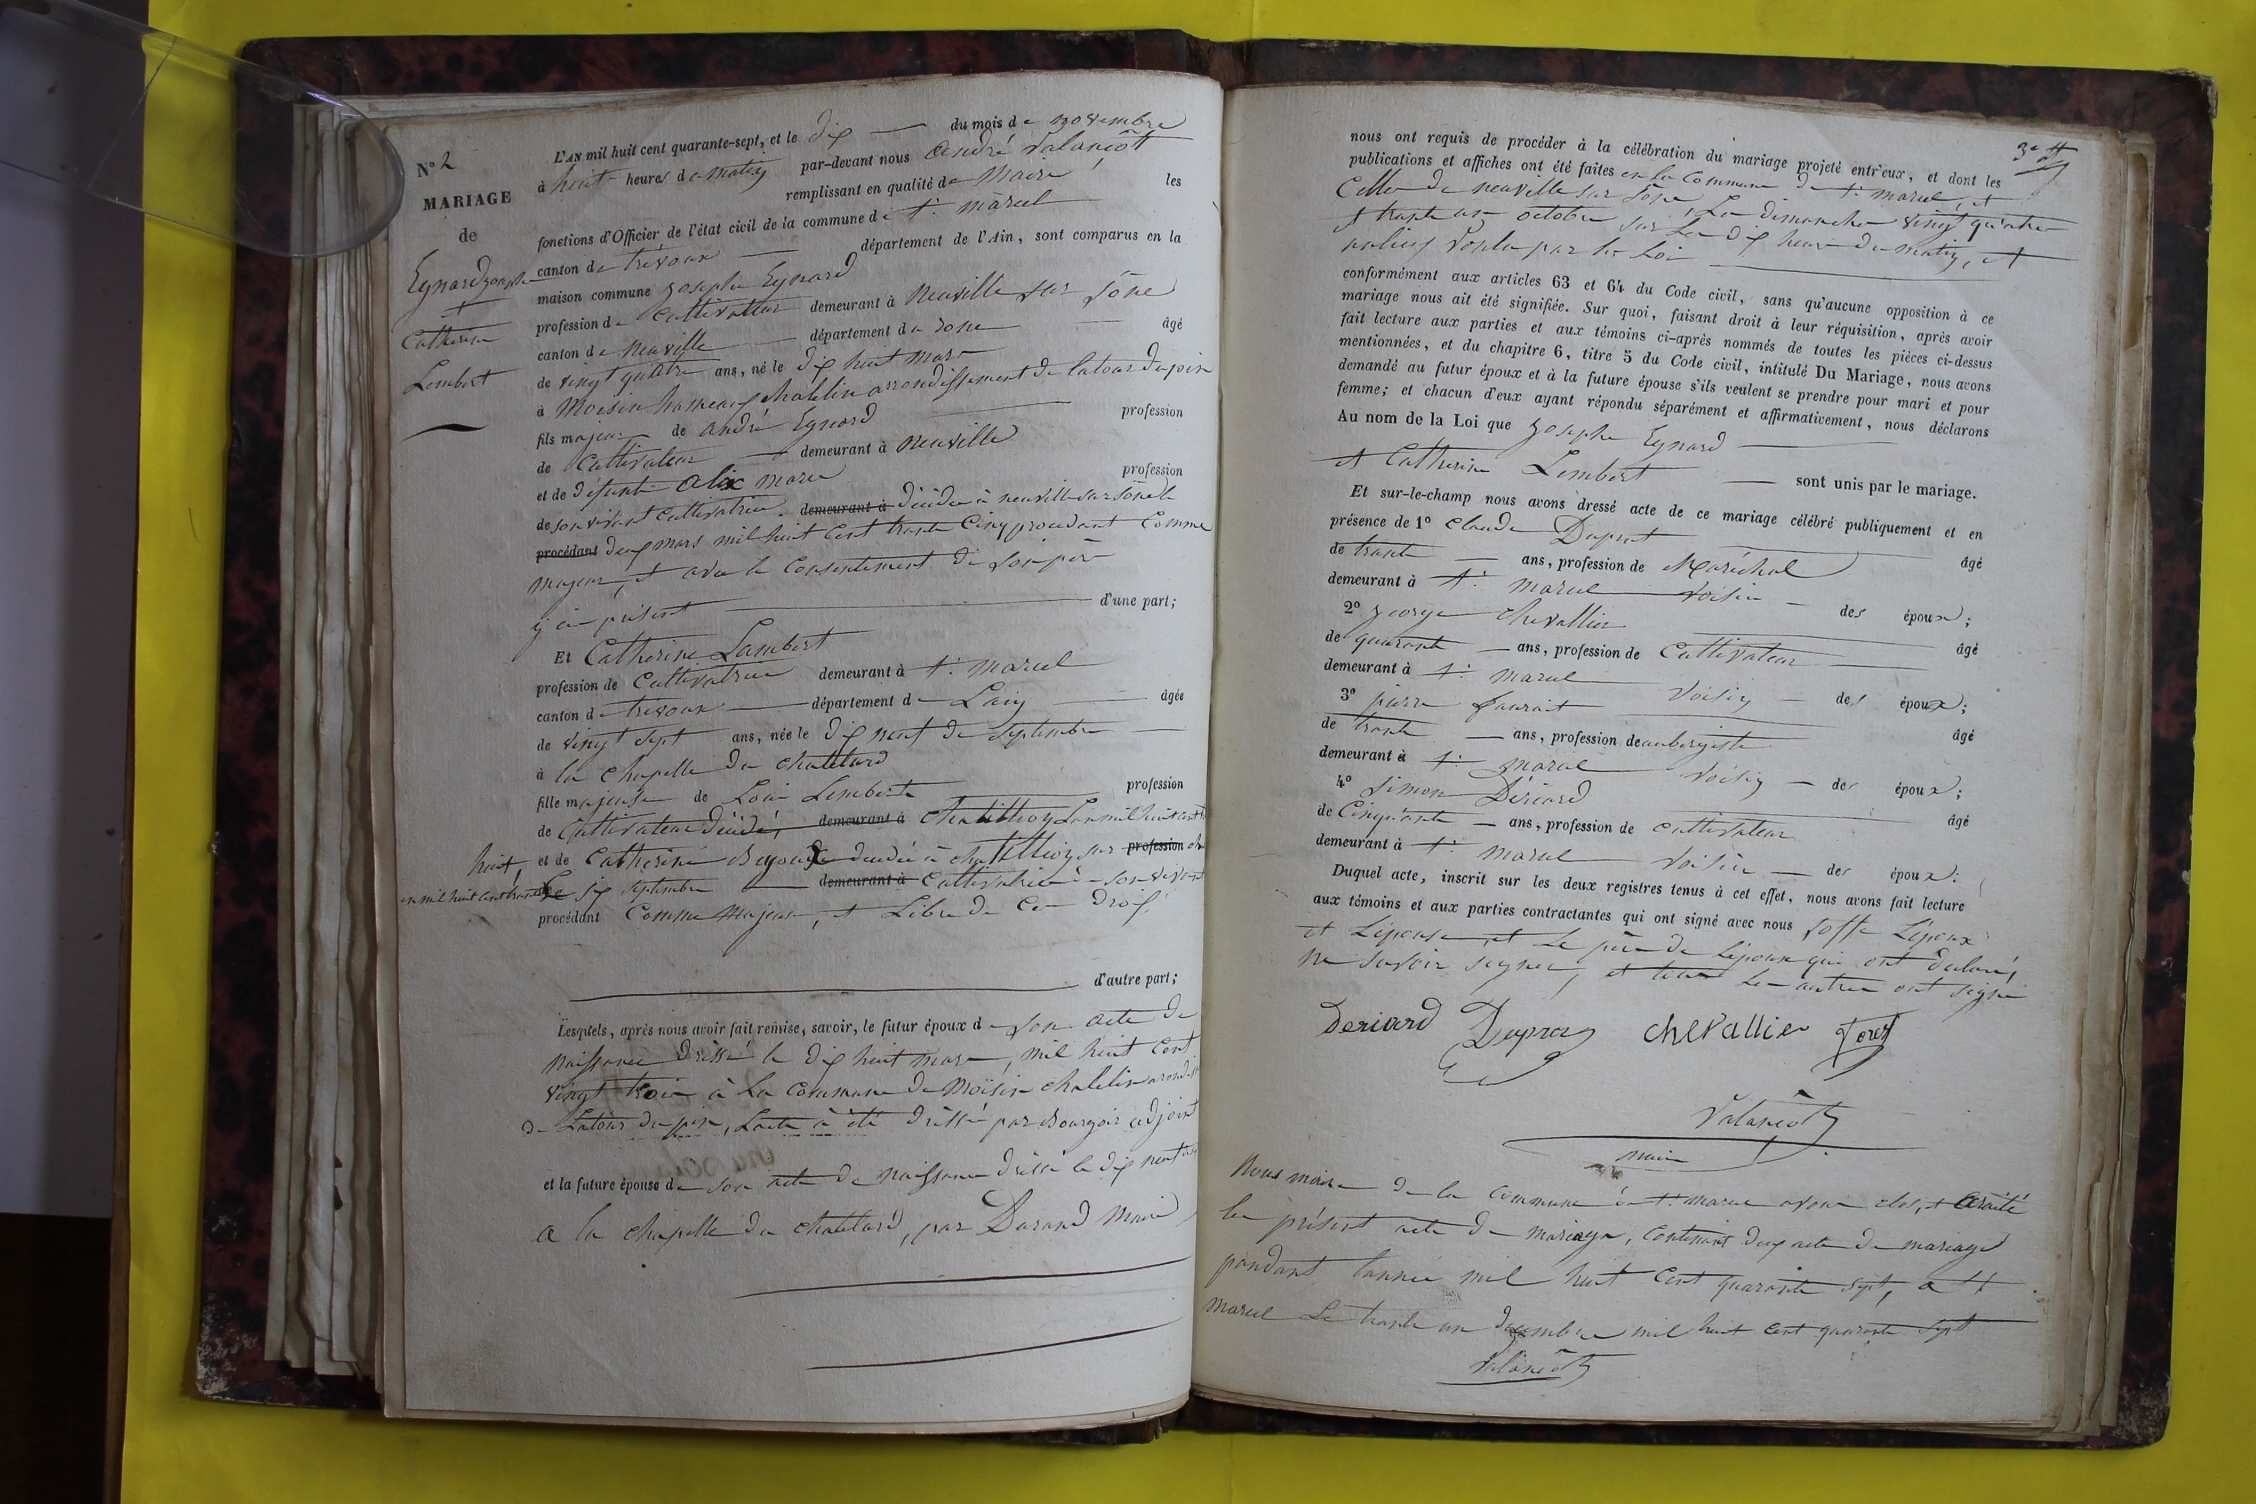 N.° 2
MARIAGE
de
Eynard Joseph
et
Catherine
Lembert
L'AN mil huit cent quarante-sept, et le dix du mois de novembre
à huit heures de matin par-devant nous André Valançot
remplissant en qualité de Maire les
fonctions d'Officier de l'état civil de la commune de St. marcel
canton de trévoux département de l'Ain, sont comparus en la
maison commune joseph Eynard
profession de Cultivateur demeurant à Neuville sur Sône
canton de Neuville département du rone âgé
de vingt quatre ans, né le dix huit mars
à Moisin hameau chatelin arrondissement de latour dupin
fils majeur de andré Eynard profession
de Cultivateur demeurant à Neuville
et de défunte alix marie profession
de son vivant cultivatrice demeurant à décédée à neuville sur Sône le
procédant deux mars mil huit cent trente cinq procédant comme
majeur, et avec le consentement de son père
y ci présent d'une part;
Et Catherine Lambert
profession de Cultivatrice demeurant à St. marcel
canton de trévoux département de Lain âgée
de vingt sept ans, née le dix neuf de septembre
à la chapelle du chatelard
fille majeure de Loui Lemberte profession
de Cultivateur décédé demeurant à chatillion Lan mil huit cent
huit, et de Catherine décédée à chatillion sur profession
en mil huit cent trente le six septembre demeurant à cultivatrice de son vivant
procédant comme majeure, et Libre de ce droit
d'autre part;
Lesquels, après nous avoir fait remise, savoir, le futur époux de son acte de
naissance dréssé le dix huit mars, mil huit cent
vingt trois à La commune de Moisin chatelin arondist
de Latour du pin, Lacte à été dréssé par Bourgois adjoint
et la future épouse de son acte de naissance dréssé le dix neuf
a la chapelle du chatelard, par Durand Maire
3e ff
nous ont requis de procéder à la célébration du mariage projeté entr'eux, et dont les
publications et affiches ont été faites en la commune de St. marcel, et
Celle de neuville sur Sône, Le dimanche vingt quatre
et trante un octobre sur Le dix heure du matin, et
au lieu voulu par la Loi
conformément aux articles 63 et 64 du Code civil, sans qu'aucune opposition à ce
mariage nous ait été signifiée. Sur quoi, faisant droit à leur réquisition, après avoir
fait lecture aux parties et aux témoins ci-après nommés de toutes les pièces ci-dessus
mentionnées, et du chapitre 6, titre 5 du Code civil, intitulé Du Mariage, nous avons
demandé au futur époux et à la future épouse s'ils veulent se prendre pour mari et pour
femme; et chacun d'eux ayant répondu séparément et affirmativement, nous déclarons
Au nom de la Loi que Joseph Eynard
et Catherine Lembert sont unis par le mariage.
Et sur-le-champ nous avons dressé acte de ce mariage célébré publiquement et en
présence de 1° Claude Duprat âgé
de trante ans, profession de Maréchal
demeurant à St. marcel voisin des époux;
2° george chevallier âgé
de quarante ans, profession de Cultivateur
demeurant à St. marcel voisin des époux;
3° pierre âgé
de trante ans, profession de aubergiste
demeurant à St. marcel voisin des époux;
4° Simon Dériard âgé
de Cinquante ans, profession de cultivateur
demeurant à St. marcel voisin des époux.
Duquel acte, inscrit sur les deux registres tenus à cet effet, nous avons fait lecture
aux témoins et aux parties contractantes qui ont signé avec nous soffe Lépoux
et Lépouse, et Le père de Lépoux qui ont déclaré,
ne savoir signer, et tous Les autres ont signé
Deriard Duprat chevallier
Valançot
maire
Nous maire de la commune de St. marcel avons clos, et arrêté
le présent acte de mariage, contenant deux acte de mariage
pendant lannee mil huit cent quarante sept, a St
marcel Le trante un decembre mil huit cent quarante sept
Valançot